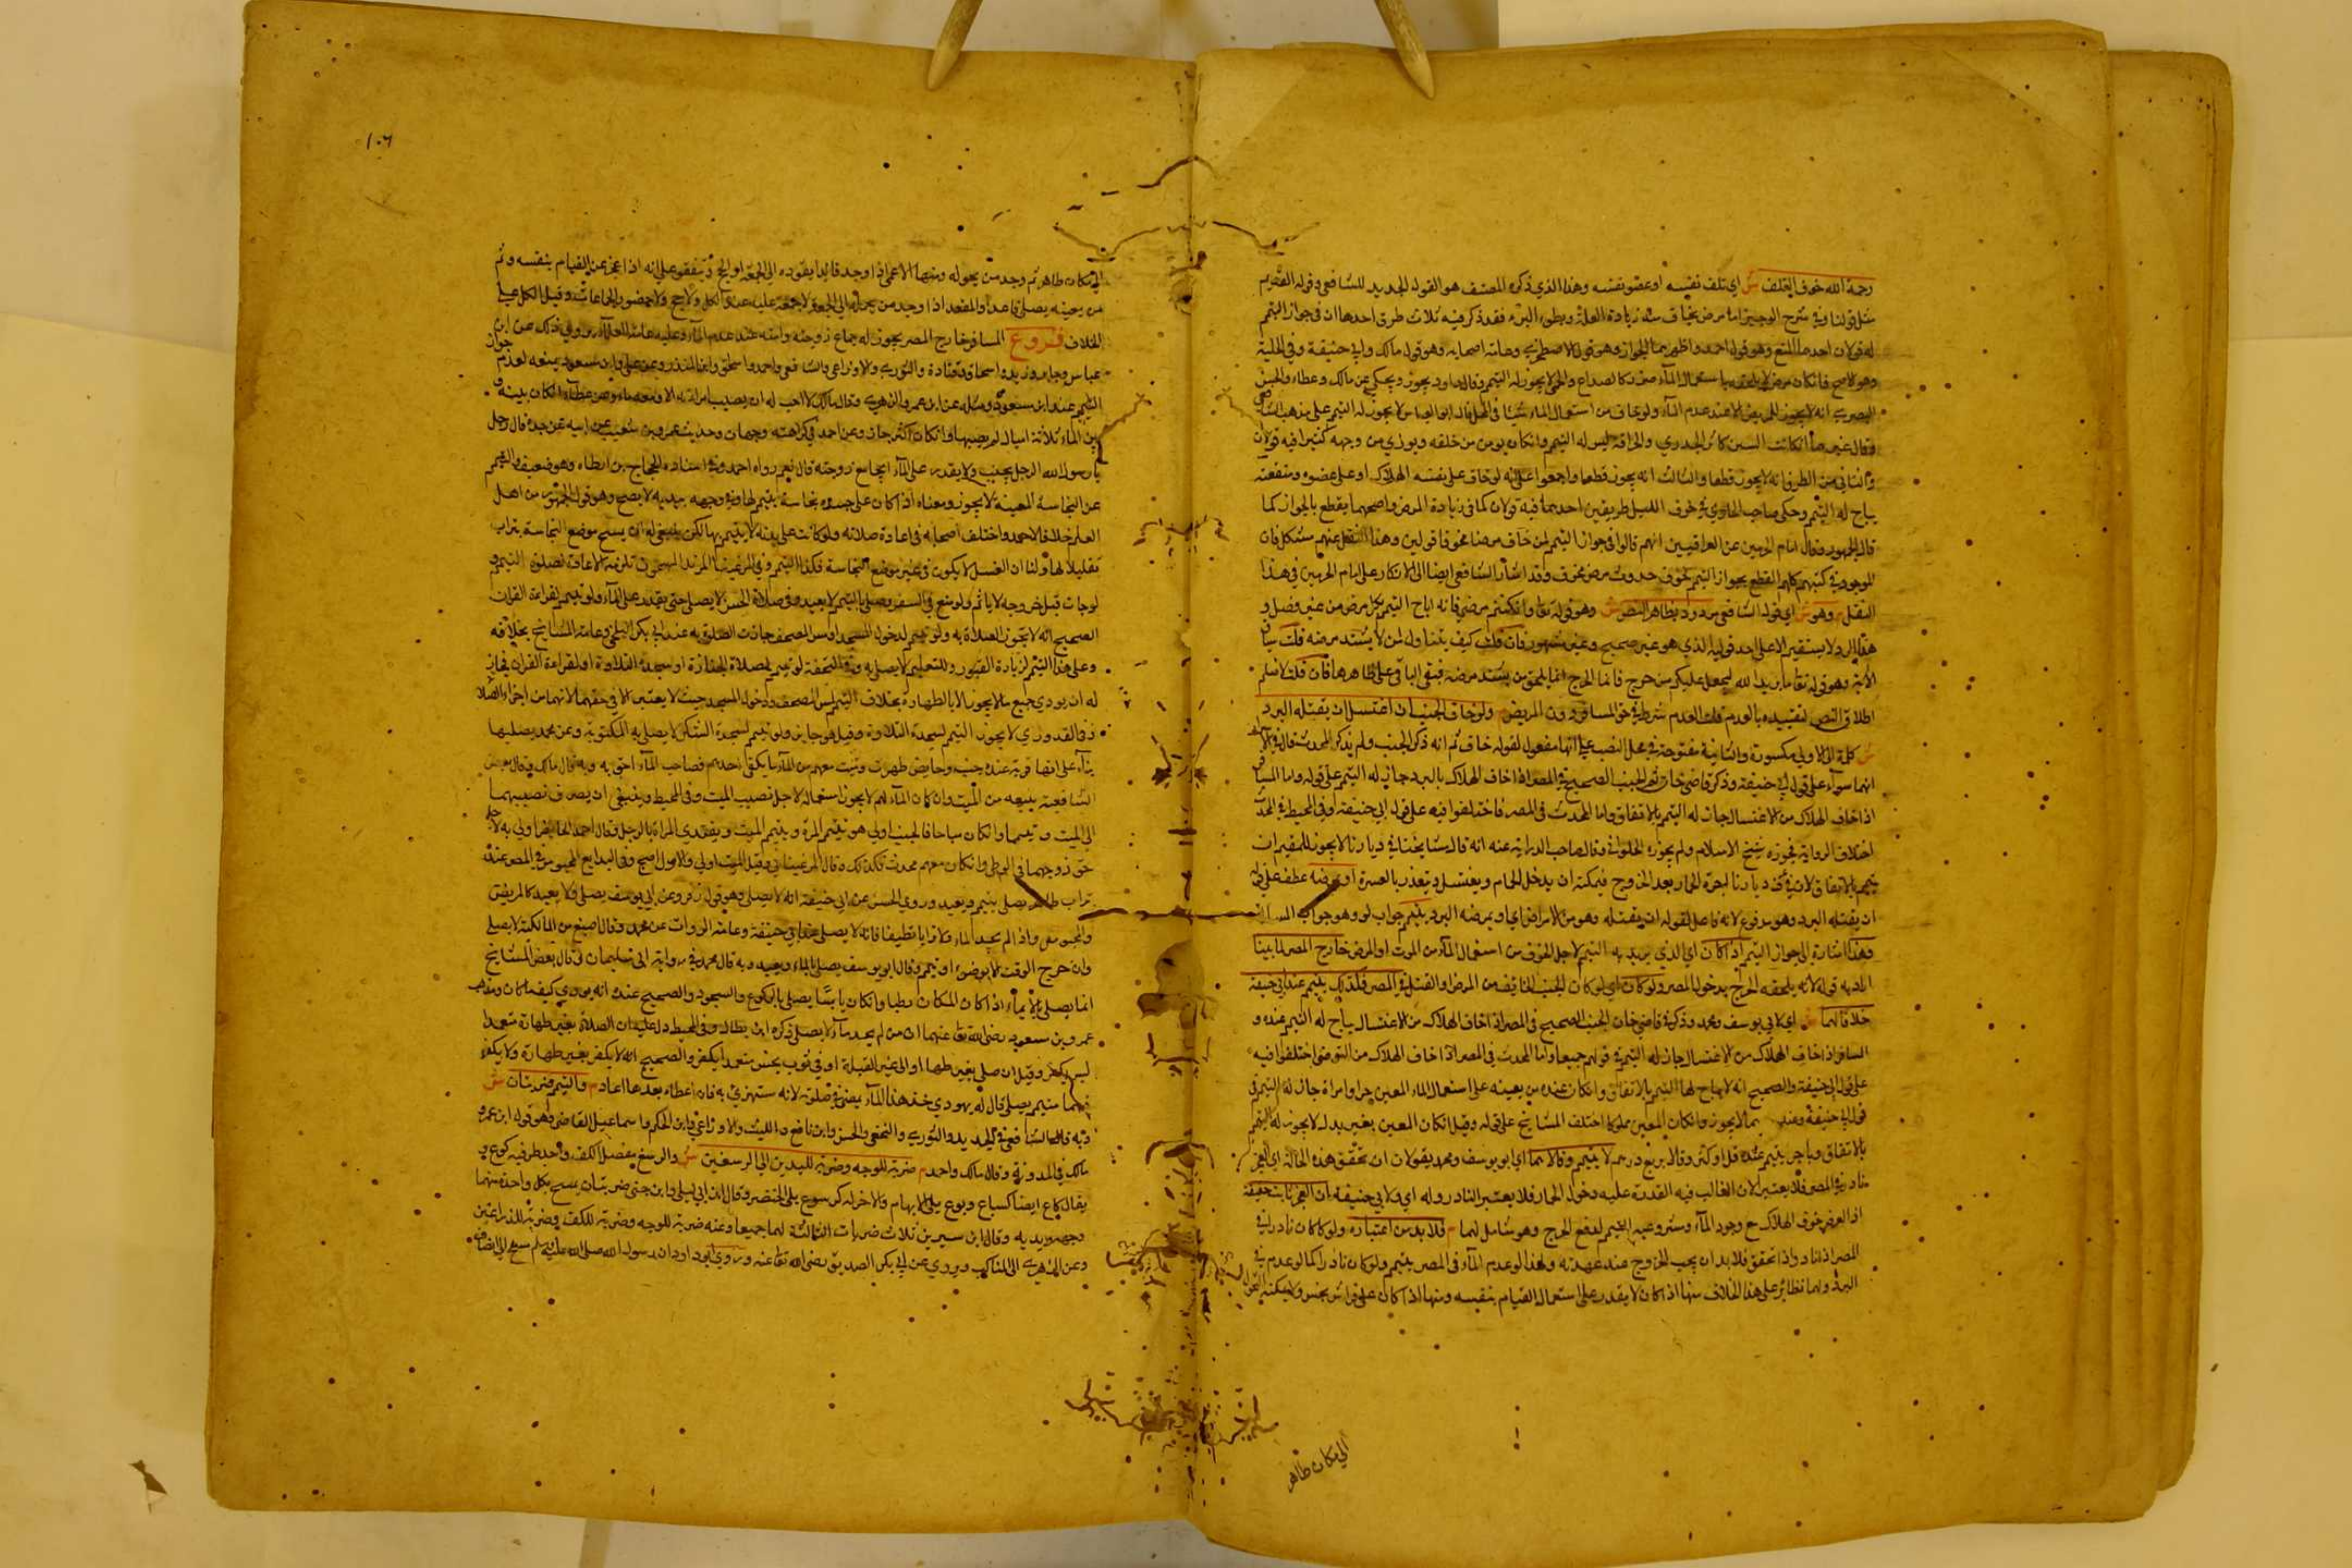 رحمه الله خوف التلف ش اي تلف نفسه او عضو نفسه وهذا الذي ذكره المصنف هو القول الجديد للشافعي وقوله القديم
مثل قولنا وفي شرح الوجيز اما مرض يخاف منه زيادة العلة وبطوء البرء فقد ذكر فيه ثلاث طرق احدها ان في جواز التيمم
له قولان احدهما المنع وهو قول احمد واظهرهما الجواز وهو قول الاصطخري وعامة اصحابه وهو قول مالك وابي حنيفة وفي الحلية
وهو الاصح فان كان مرض لا يلحقه باستعمال الماء ضرر كالصداع والحمى لا يجوز له التيمم وقال داود يجوز ويحكى عن مالك وعطاء والحسن
البصري انه لا يجوز للمريض الا عند عدم الماء ولو خاف من استعمال الماء شيئا في المحل قال ابو العباس لا يجوز له التيمم على مذهب الشافعي
وقال غيره ان كانت الشين كاثر الجدري والحراقة ليس له التيمم وان كان يوهن من خلقه ويوزي من وجهه كثيرا فيه قولان
والثاني من الطرق انه لا يجوز قطعا والثالث انه يجوز قطعا واجمعوا على انه لو خاف على نفسه الهلاك او على عضوه ومنفعته
يباح له التيمم وحكى صاحب الحاوي في خوف الليل طريقين احدهما فيه قولان كما في زيادة المرض واصحهما يقطع بالجواز كما
قاله الجمهور وقال امام الحرمين عن العراقيين انهم قالوا في جواز التيمم لمن خاف مرضا مخوفا قولين وهذا النقل عنهم مشكل فان
الموجود في كتبهم كلهم القطع بجواز التيمم لخوف حدوث مرض مخوف وقد اشار الشافعي ايضا الى الانكار على امام الحرمين في هذا
النقل م وهو ش اي قول الشافعي م مردود بظاهر النص ش وهو قوله تعالى وان كنتم مرضى فانه اباح التيمم لكل مرض من غير فصل و
هذا الرد لا يستقيم الا على احد قوليه الذي هو غير صحيح وغير مشهور فان قلت كيف يتناول لمن لا يشتد مرضه قلت سياق
الاية وهو قوله تعالى ما يريد الله ليجعل عليكم من حرج فانما الحرج انما يلحق من يشتد مرضه فبقي الباقي على ظاهرها فان قلت لا نسلم
اطلاق النص لتقييده بالعدم قلت العدم شرط في حق المسافر دون المريض م ولو خاف الجنب ان اغتسل ان يقتله البرد
ش كلمة ان الاولى مكسورة والثانية مفتوحة في محل النصب على انها مفعول لقوله خاف ثم انه ذكر الجنب ولم يذكر المحدث
انهما سواء على قول ابي حنيفة وذكر قاضي خان الجنب الصحيح في المصر اذا خاف الهلاك بالبرد جاز له التيمم على قوله واما المسافر
اذا خاف الهلاك من الاغتسال جاز له التيمم بالاتفاق واما المحدث في المصر فاختلفوا فيه على قول ابي حنيفة وفي المحيط في المحدث
اختلاف الرواية فجوزه شيخ الاسلام ولم يجوزه الحلواني وقال صاحب الدراية عنه انه قال مشايخنا في ديارنا لا يجوز للمقيم ان
يتيمم بالاتفاق لان في عرف ديارنا اجرة الحمام بعد الخروج فيمكنه ان يدخل الحمام ويغتسل ويتعذر بالعسرة او يمرضه عطف على قوله
ان يقتله البرد وهو مرفوع لانه فاعل لقوله ان يقتله وهو من الامراض اي او يمرضه البرد يتيمم جواب لو وهو جواب
وهذا اشارة الى جواز التيمم اذا كان اي الذي يريد به التيمم لاجل الخوف من استعمال الماء من الموت او المرض خارج المصر لما بينا
اراد به قوله لانه يلحقه الحرج بدخول المصر ولو كان اي لو كان الجنب الخائف من المرض او القتل في المصر فكذلك يتيمم عند ابي حنيفة
خلافا لهما ش اي لابي يوسف ومحمد وذكر قاضي خان الجنب الصحيح في المصر اذا خاف الهلاك من الاغتسال يباح له التيمم عنده و
المسافر اذا خاف الهلاك من الاغتسال جاز له التيمم في قولهم جميعا واما المحدث في المصر اذا خاف الهلاك من التوضي اختلفوا فيه
على قول ابي حنيفة والصحيح انه لا يباح لها التيمم بالاتفاق وان كان عنده من يعينه على استعمال الماء المعين حرا او امراة جاز له التيمم في
قول ابي حنيفة وعندهما لا يجوز وان كان المعين مملوكا اختلف المشايخ على قوله وقيل ان كان المعين بغير بدل لا يجوز له التيمم
بالاتفاق وباجر يتيمم عنده قل او كثر وقالا بربع درهم لا يتيمم وقالا هما اي ابو يوسف ومحمد يقولان ان تحقق هذه الحالة اي العجز
نادر في المصر فلا يعتبر لان الغالب فيه القدرة عليه دخول الحمام فلا يعتبر النادر وله اي ولابي حنيفة ان العجز ثابت حقيقة
اذ العرض خوف الهلاك مع وجود الماء وشروعية التيمم لدفع الحرج وهو شامل لهما م فلا بد من اعتباره ولو كان نادرا في
المصر اذ النادر اذا تحقق فلا بد ان يجب الخروج عند عهدته ولهذا لو عدم الماء في المصر يتيمم ولو كان نادرا كما لو عدم في
البر ولهما نظائر على هذا الخلاف منها اذا كان لا يقدر على استعمال القيام بنفسه ومنها اذا كان على فراش نجس ولا يمكنه التحول
الى مكان طاهر
١٠٦
الى مكان طاهر ثم وجد من يحوله ومنها الاعمى اذا وجد قائدا يقوده الى الجمعة او الحج ويتفقون على انه اذا عجز عن القيام بنفسه وثم
من يعينه يصلي قاعدا والمقعد اذا وجد من يحمله الى الجمعة لا جمعة عليه عند الكل ولا حج ولا حضور الجماعات وقيل الكل على
الخلاف فروع المسافر خارج المصر يجوز له جماع زوجته وامته عند عدم الماء وعليه عامة العلماء روي ذلك عن ابن
عباس وجابر وزيد واسحاق وقتادة والثوري والاوزاعي والشافعي واحمد واسحاق وابن المنذر وعن علي وابن مسعود يمنعه لعدم جواز
التيمم عند ابن مسعود ومثله عن ابن عمر والزهري وقال مالك لا احب له ان يصيب امراته الا ومعه ماء وعن عطاء ان كان بينه و
بين الماء ثلاثة اميال لم يصبها وان كان اكثر جاز وعن احمد في كراهته وجهان وحديث عمرو بن شعيب عن ابيه عن جده قال رجل
يا رسول الله الرجل يجنب ولا يقدر على الماء ايجامع زوجته قال نعم رواه احمد وفي اسناده الحجاج بن ارطاه وهو ضعيف والتيمم
عن النجاسة العينية لا يجوز ومعناه اذا كان على جسده نجاسة يتيمم لها في وجهه ويديه لا يصح وهو قول الجمهور من اهل
العلم خلافا لاحمد واختلف اصحابه في اعادة صلاته ولو كانت على بدنه لا يتيمم بها لكن ينبغي له ان يمسح موضع النجاسة بتراب
تقليلا لها ولنا ان الغسل لا يكون في غير موضع النجاسة فكذا التيمم
لوجات قبل خروجه لا ياثم ولو منع في السفر يصلي بالتيمم لا يعيد وفي صلاة الحسن لا يصلي حتى يقدر على الماء ولو تيمم لقراءة القران
الصحيح انه لا تجوز الصلاة به ولو تيمم لدخول المسجد او مس المصحف جازت الصلاة به عند ابي بكر البلخي وعامة المشايخ بخلافه
وعلى هذا التيمم لزيارة القبور وللتعليم لا يصلي به وفي التحفة لو تيمم لصلاة الجنازة او سجدة التلاوة او لقراءة القران فجاز
له ان يودي جميع ما لا يجوز الا بالطهارة بخلاف التيمم لمس المصحف ودخول المسجد حيث لا يعتبر الا في حقهما لانهما من اجزاء الصلاة
وفي القدوري لا يجوز التيمم لسجدة التلاوة وقيل هو جايز ولو تيمم لسجدة الشكر لا يصلي به المكتوبة وعن محمد يصليها
بناء على انها قربة عنده جنب وحايض طهرت وميت معهم من الماء ما يكفي احدهم فصاحب الماء احق به وبه قال مالك وقال بعض
الشافعية يبيعه من الميت وان كان الماء لهم لا يجوز استعماله لاجل نصيب الميت وفي المحيط وينبغي ان يصرف نصيبهما
الى الميت ويتيمما وان كان مباحا فالجنب اولى هو تتيمم المرأة ويتيمم الميت ويقتدي المراة بالرجل وقال احمد الحايض اولى به لاجل
حق زوجها في الوطي وان كان معهم محدث فكذلك وقال المرغيناني وقيل الميت اولى والاول اصح وفي البدايع المحبوس في المصر عنده
تراب طاهر يصلي بتيمم ويعيد وروي الحسن عن ابي حنيفة انه لا يصلي وهو قول زفر وعن ابي يوسف يصلي ولا يعيد كالمريض
والمحبوس اذا لم يجد الماء ولا ترابا نظيفا فانه لا يصلي عند ابي حنيفة وعامة الروايات عن محمد وقال اصبغ من المالكية لا يصلي
وان خرج الوقت الا بوضوء او تيمم وقال ابو يوسف يصلي بالايماء ويعيد وبه قال محمد في رواية ابي سليمان ثم قال بعض المشايخ
انما يصلي بالايماء اذا كان المكان رطبا وان كان يابسا يصلي بالركوع والسجود والصحيح عنده انه يومئ كيف ما كان ومذهب
عمر وبن مسعود رضي الله تعالى عنهما ان من لم يجد ماء لا يصلي ذكره ابن بطال وفي المحيط دل عليه ان الصلاة بغير طهارة متعمدا
ليس بكفر وقيل ان صلى بغير طهارة او الى غير القبلة او في ثوب نجس متعمدا يكفر والصحيح انه لا يكفر بغير طهارة ولا يكفر
فيهما متيمم يصلي قال له يهودي خذ هذا الماء يمضي في صلوته لانه مستهزئ به فان اعطاه بعدها اعاد م والتيمم ضربتان ش
وبه قال الشافعي في الجديد والثوري والنخعي والحسن وابن نافع والليث والاوزاعي وابن الحكم واسماعيل القاضي وهو قول ابن عمر و
مالك في المدونة وقال مالك واحمد م ضربة للوجه وضربة لليدين الى الرسغين ش والرسغ مفصل الكف واحد طرفيه كوع و
يقال كاع ايضا كباع وبوع يلي الابهام والاخر له كرسوع يلي الخنصر وقال ابن ابي ليلى وابن حيي ضربتان يمسح بكل واحدة منهما
وجهه ويديه وقال ابن سيرين ثلاث ضربات الثالثة لهما جميعا وعنه ضربة للوجه وضربة للكف وضربة للذراعين
وعن الزهري الى المناكب وروي عن ابي بكر الصديق رضي الله تعالى عنه وروى ابو داود ان رسول الله صلى الله عليه وسلم مسح الى انصاف